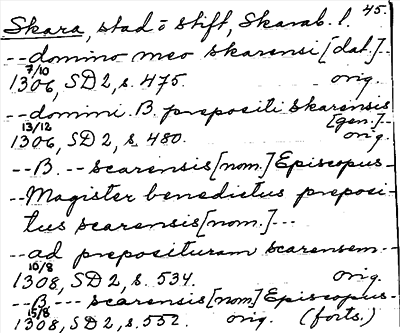 Skara, stad o stift, Skarab. l. 45.
-- domino meo skarensi [dat.] --
7/10
1306, SD 2, s. 475. orig.
-- domini B. prepositi skarensis
[gen.] --
13/12
1306, SD 2, s. 480. orig.
-- B. -- scarensis [nom.] Episcopus --
-- Magister benedictus preposi-
tus scarensis [nom.] ---
-- ad preposituram scarensem --
10/8
1308, SD 2, s. 534. orig.
-- B --- scarensis [nom] Episcopus --
15/8
1308, SD 2, s. 552. orig. (forts.)